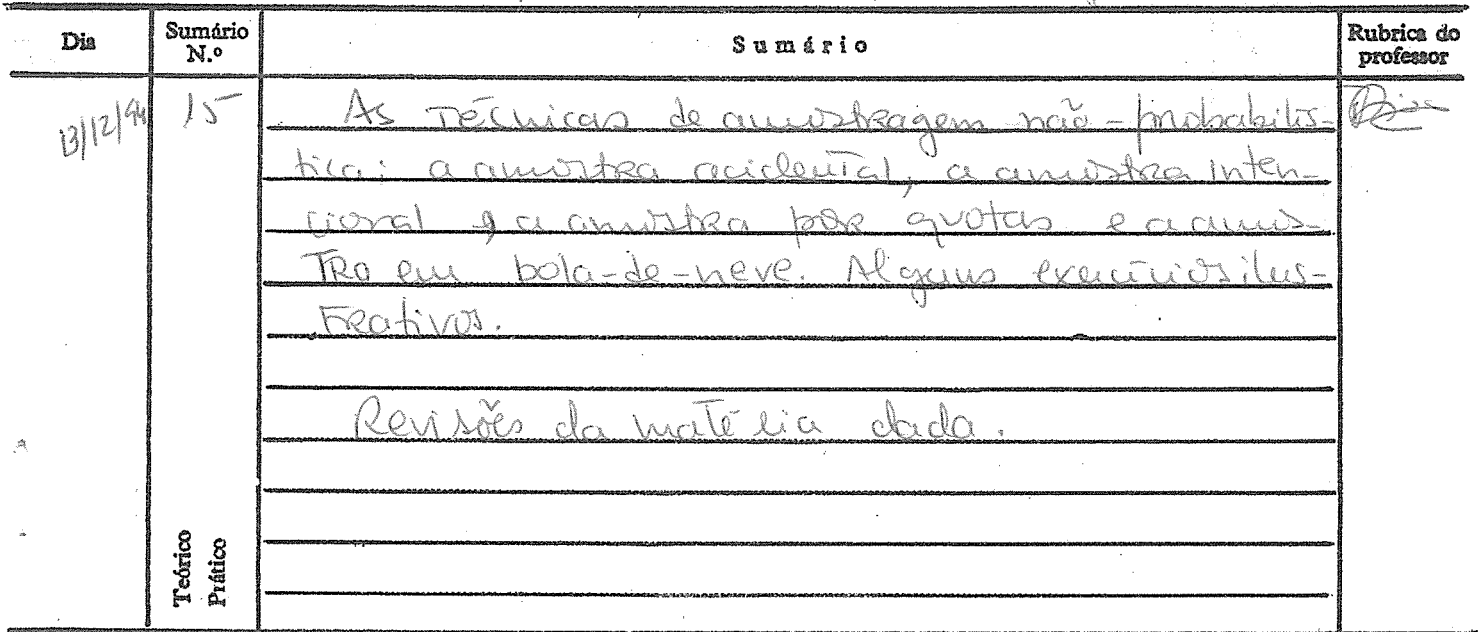 Dia
Sumário N.º
Sumário
Rubrica do professor
13/12/94
15
As Técnicas de amostragem não-probabilís-
tica: a amostra acidental, a amostra inten-
cional e a amostra por quotas e a amos-
tra em bola-de-neve. Alguns exercícios ilus-
trativos.
Revisões da matéria dada.
Teórico
Prático